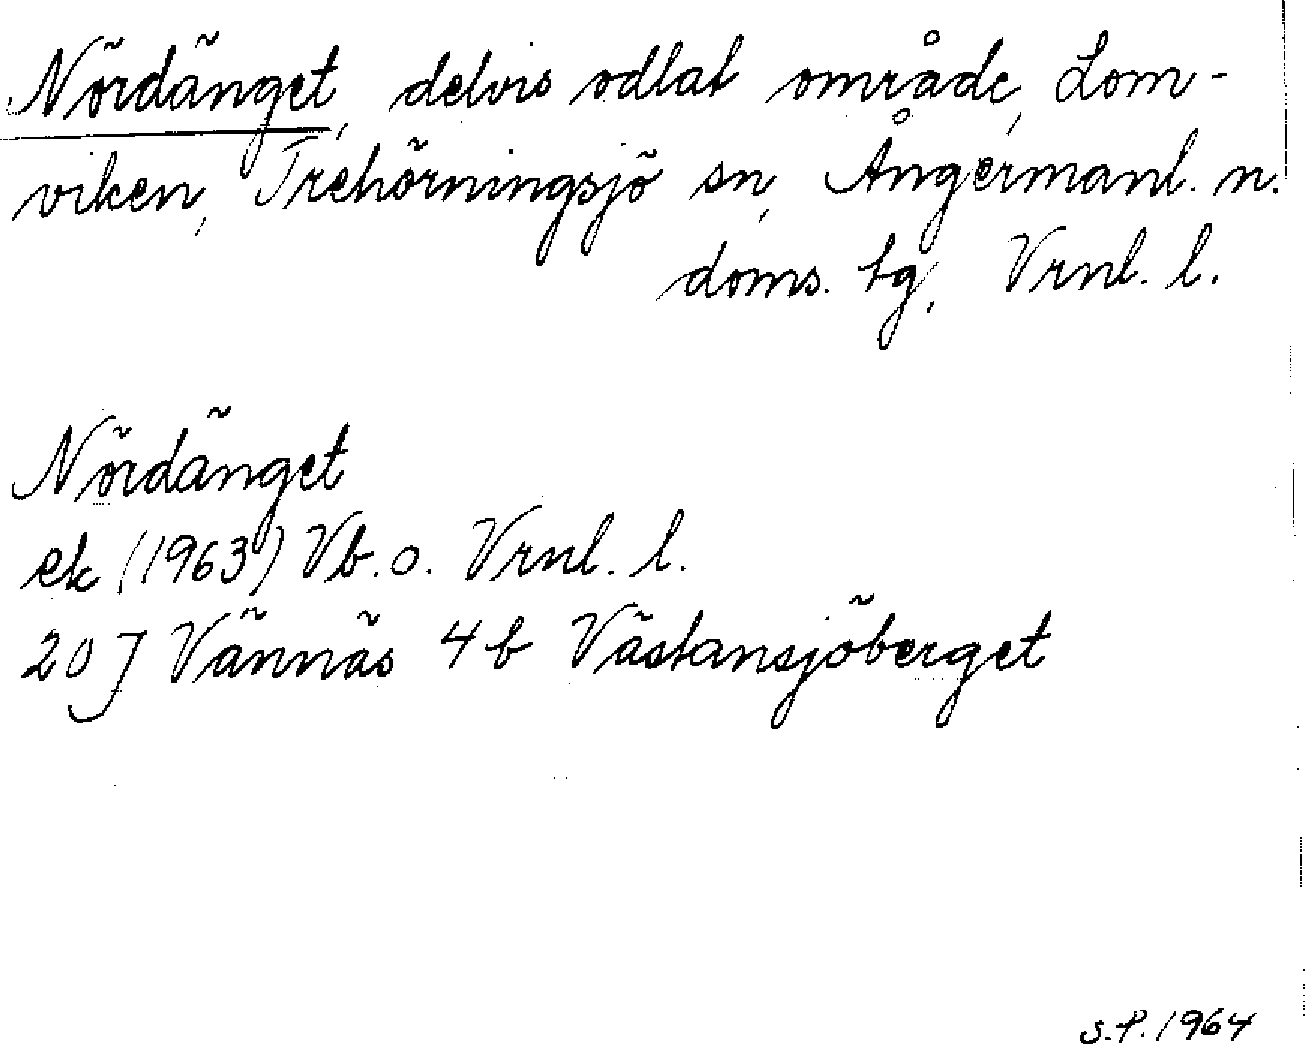 Nördänget, delvis odlat område, Lom-
viken, Trehörningsjö sn, Ångermanl. n.
doms. tg, Vrnl. l.
Nördänget
ek (1963) Vb. o. Vrnl. l.
20 J Vännäs 4 b Västansjöberget
S.P. 1964